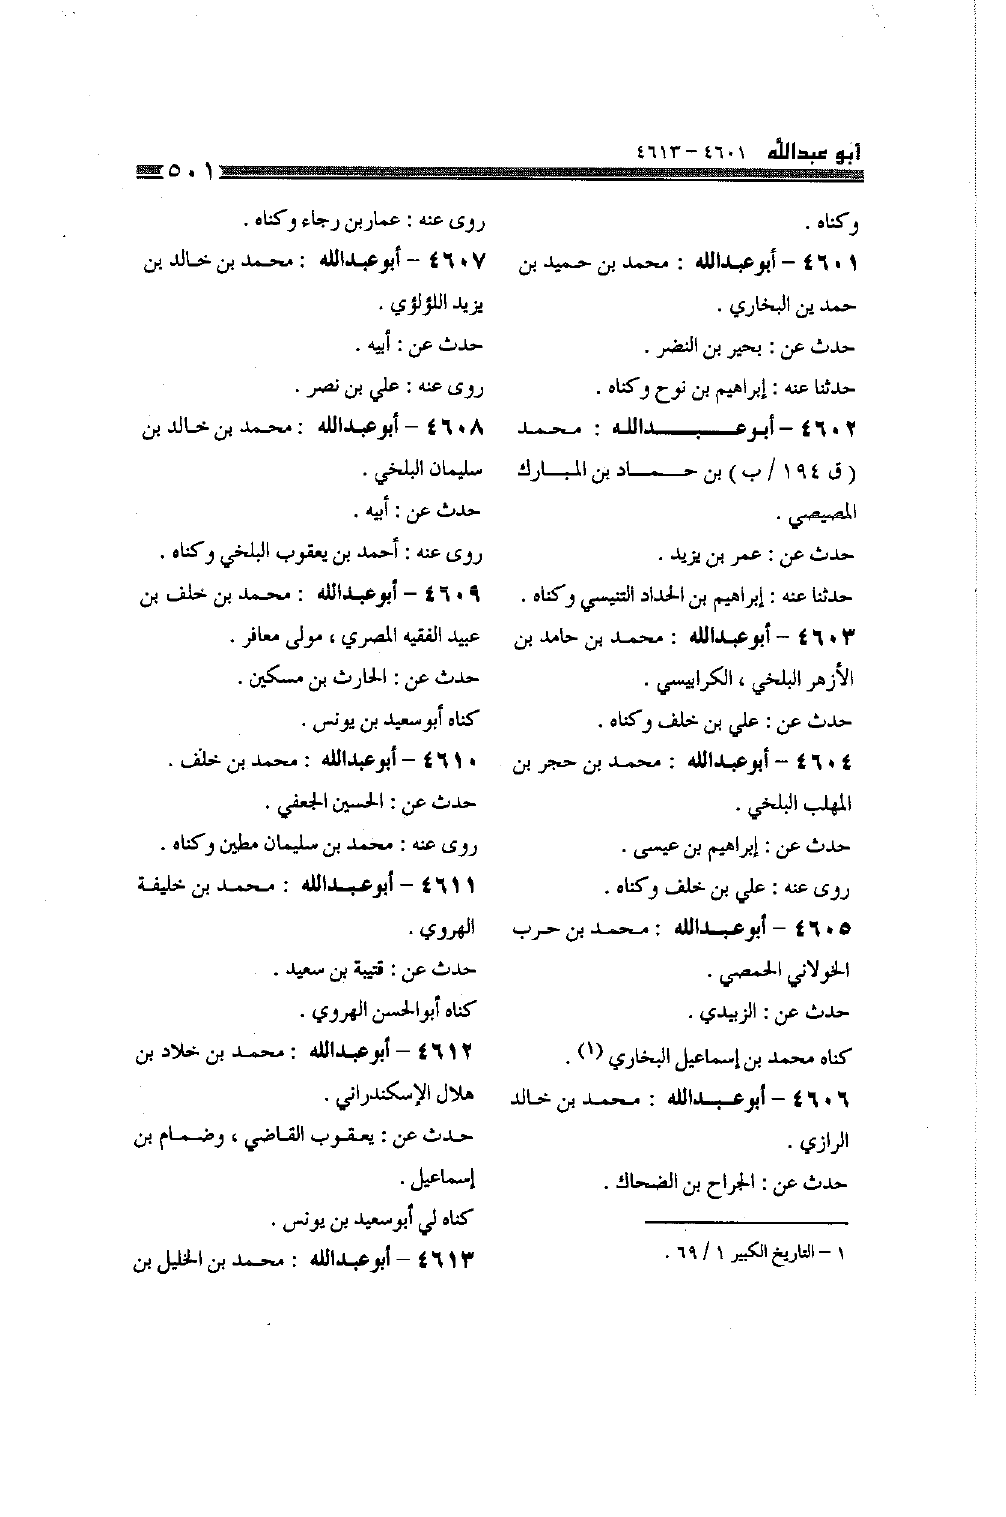 أبو عبدالله ٤٦٠١ – ٤٦١٣
٥٠١
وكناه .
٤٦٠١ – أبوعبدالله : محمد بن حميد بن
حمد بن البخاري .
حدث عن : بحير بن النضر .
حدثنا عنه : إبراهيم بن نوح وكناه .
٤٦٠٢ – أبوعبدالله : محمد
( ق ١٩٤ / ب ) بن حماد بن المبارك
المصيصي .
حدث عن : عمر بن يزيد .
حدثنا عنه : إبراهيم بن الحداد التنيسي وكناه .
٤٦٠٣ – أبوعبدالله : محمد بن حامد بن
الأزهر البلخي ، الكرابيسي .
حدث عن : علي بن خلف وكناه .
٤٦٠٤ – أبوعبدالله : محمد بن حجر بن
المهلب البلخي .
حدث عن : إبراهيم بن عيسى .
روى عنه : علي بن خلف وكناه .
٤٦٠٥ – أبوعبدالله : محمد بن حرب
الخولاني الحمصي .
حدث عن : الزبيدي .
كناه محمد بن إسماعيل البخاري (١) .
٤٦٠٦ – أبوعبدالله : محمد بن خالد
الرازي .
حدث عن : الجراح بن الضحاك .
١ – التاريخ الكبير ١ / ٦٩ .
روى عنه : عمار بن رجاء وكناه .
٤٦٠٧ – أبوعبدالله : محمد بن خالد بن
يزيد اللؤلؤي .
حدث عن : أبيه .
روى عنه : علي بن نصر .
٤٦٠٨ – أبوعبدالله : محمد بن خالد بن
سليمان البلخي .
حدث عن : أبيه .
روى عنه : أحمد بن يعقوب البلخي وكناه .
٤٦٠٩ – أبوعبدالله : محمد بن خلف بن
عبيد الفقيه المصري ، مولى معافر .
حدث عن : الحارث بن مسكين .
كناه أبوسعيد بن يونس .
٤٦١٠ – أبوعبدالله : محمد بن خلف .
حدث عن : الحسين الجعفي .
روى عنه : محمد بن سليمان مطين وكناه .
٤٦١١ – أبوعبدالله : محمد بن خليفة
الهروي .
حدث عن : قتيبة بن سعيد .
كناه أبوالحسن الهروي .
٤٦١٢ – أبوعبدالله : محمد بن خلاد بن
هلال الإسكندراني .
حدث عن : يعقوب القاضي ، وضمام بن
إسماعيل .
كناه لي أبوسعيد بن يونس .
٤٦١٣ – أبوعبدالله : محمد بن الخليل بن